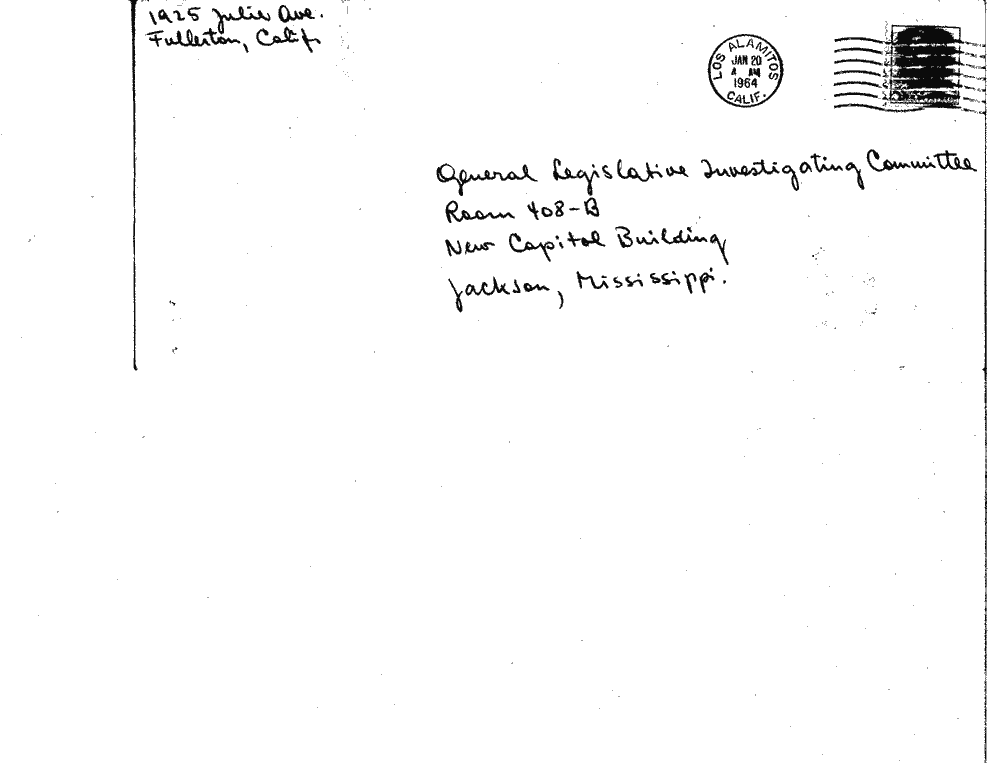 1925 Julie Ave.
Fullerton, Calif.
LOS ALAMITOS
JAN 20
AM
1964
CALIF.
General Legislative Investigating Committee
Room 408-B
New Capitol Building
Jackson, Mississippi.